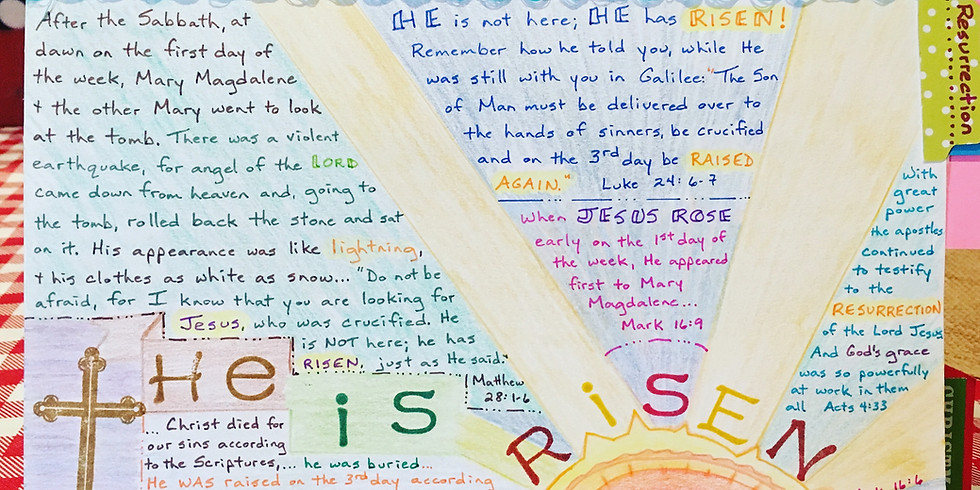 After the Sabbath, at
dawn on the first day of
the week, Mary Magdalene
+ the other Mary went to look
at the tomb. There was a violent
earthquake, for angel of the LORD
came down from heaven and, going to
the tomb, rolled back the stone and sat
on it. His appearance was like lightning,
+ his clothes as white as snow... "Do not be
afraid, for I know that you are looking for
Jesus, who was crucified. He
is NOT here; he has
RISEN, just as He said."
Matthew
28:1-6
HE is not here; HE has RISEN!
Remember how he told you, while He
was still with you in Galilee: "The Son
of Man must be delivered over to
the hands of sinners, be crucified
and on the 3rd day be RAISED
AGAIN." Luke 24:6-7
When JESUS ROSE
early on the 1st day of
the week, He appeared
first to Mary
Magdalene...
Mark 16:9
With
great
power
the apostles
continued
to testify
to the
RESURRECTION
of the Lord Jesus
And God's grace
was so powerfully
at work in them
all Acts 4:33
He
is
RiSEN
... Christ died for
our sins according
to the Scriptures,... he was buried...
He WAS raised on the 3rd day according
16:6
Resurrection